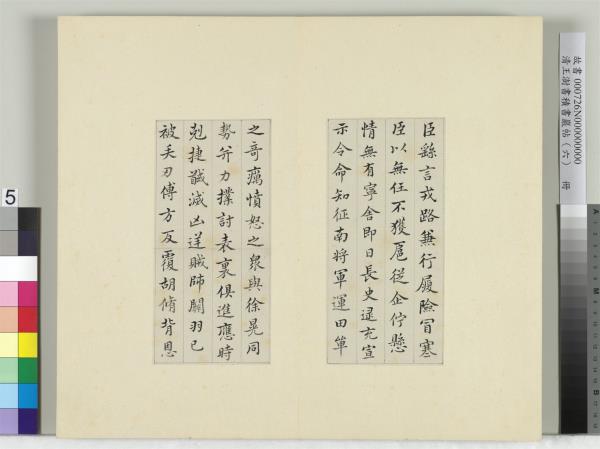 臣繇言戎路兼行履險冒寒
臣以無任不獲扈從企佇懸
情無有寧舍即日長史逯充宣
示令命知征南將軍運田單
之奇厲憤怒之眾與徐晃同
勢并力撲討表裏俱進應時
剋捷馘滅凶逆賊帥關羽已
被矢刃傅方反覆胡脩背恩
故書000726N000000000
清王澍書積書巖帖（六） 冊
5